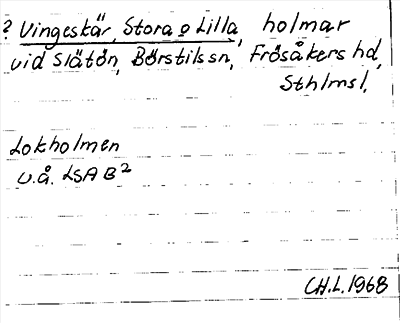 ? Vingeskär, Stora o Lilla, holmar
vid Slätön, Börstilssn, Frösåkers hd,
Sthlmsl.
Lokholmen
u.å. LSA B²
CH.L. 1968